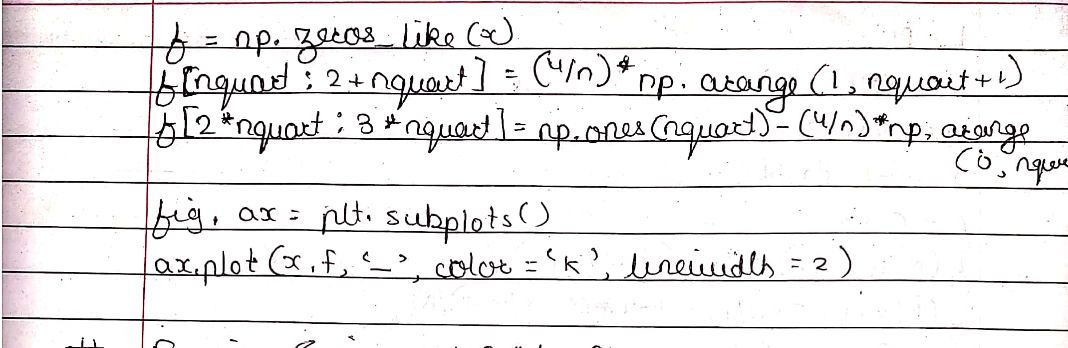 f = np. zeros_like (x)
f[nquart : 2+nquart] = (4/n)* np. arange (1, nquart+1)
f[2*nquart : 3*nquart] = np.ones(nquart) - (4/n)*np, arange
(0, nqua
fig, ax = plt. subplots()
ax.plot (x, f, '_', color = 'k', linewidth = 2)